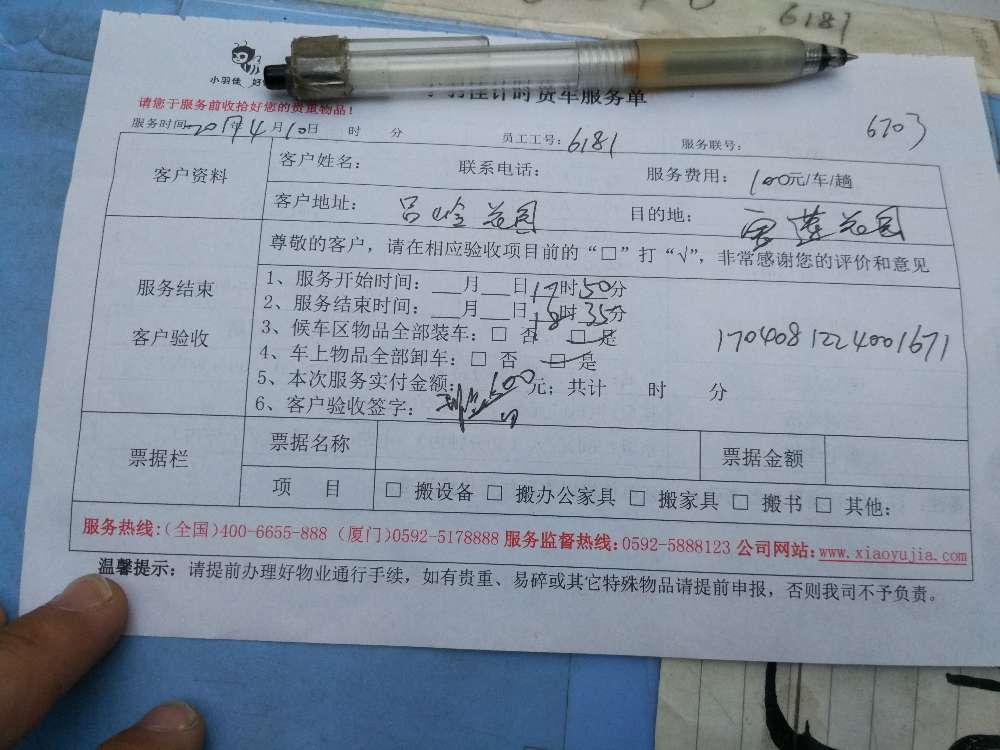 6181
小羽佳 好
小羽佳计时货车服务单
请您于服务前收拾好您的贵重物品！
服务时间 2017年4月10日 时 分 员工工号：6181 服务联号： 6703
客户资料 客户姓名： 联系电话： 服务费用：100元/车/趟
客户地址： 吕岭花园 目的地： 莲花园
尊敬的客户，请在相应验收项目前的“□”打“√”，非常感谢您的评价和意见
服务结束
客户验收
1、服务开始时间：___月___日17时50分
2、服务结束时间：___月___日18时35分
3、候车区物品全部装车：□ 否 □ 是
4、车上物品全部卸车：□ 否 □ 是
1704081224001671
5、本次服务实付金额：100元；共计 时 分
6、客户验收签字：
票据栏 票据名称 票据金额
项 目 □ 搬设备 □ 搬办公家具 □ 搬家具 □ 搬书 □ 其他：
服务热线:（全国)400-6655-888（厦门)0592-5178888 服务监督热线:0592-5888123 公司网站:www.xiaoyujia.com
温馨提示：请提前办理好物业通行手续，如有贵重、易碎或其它特殊物品请提前申报，否则我司不予负责。